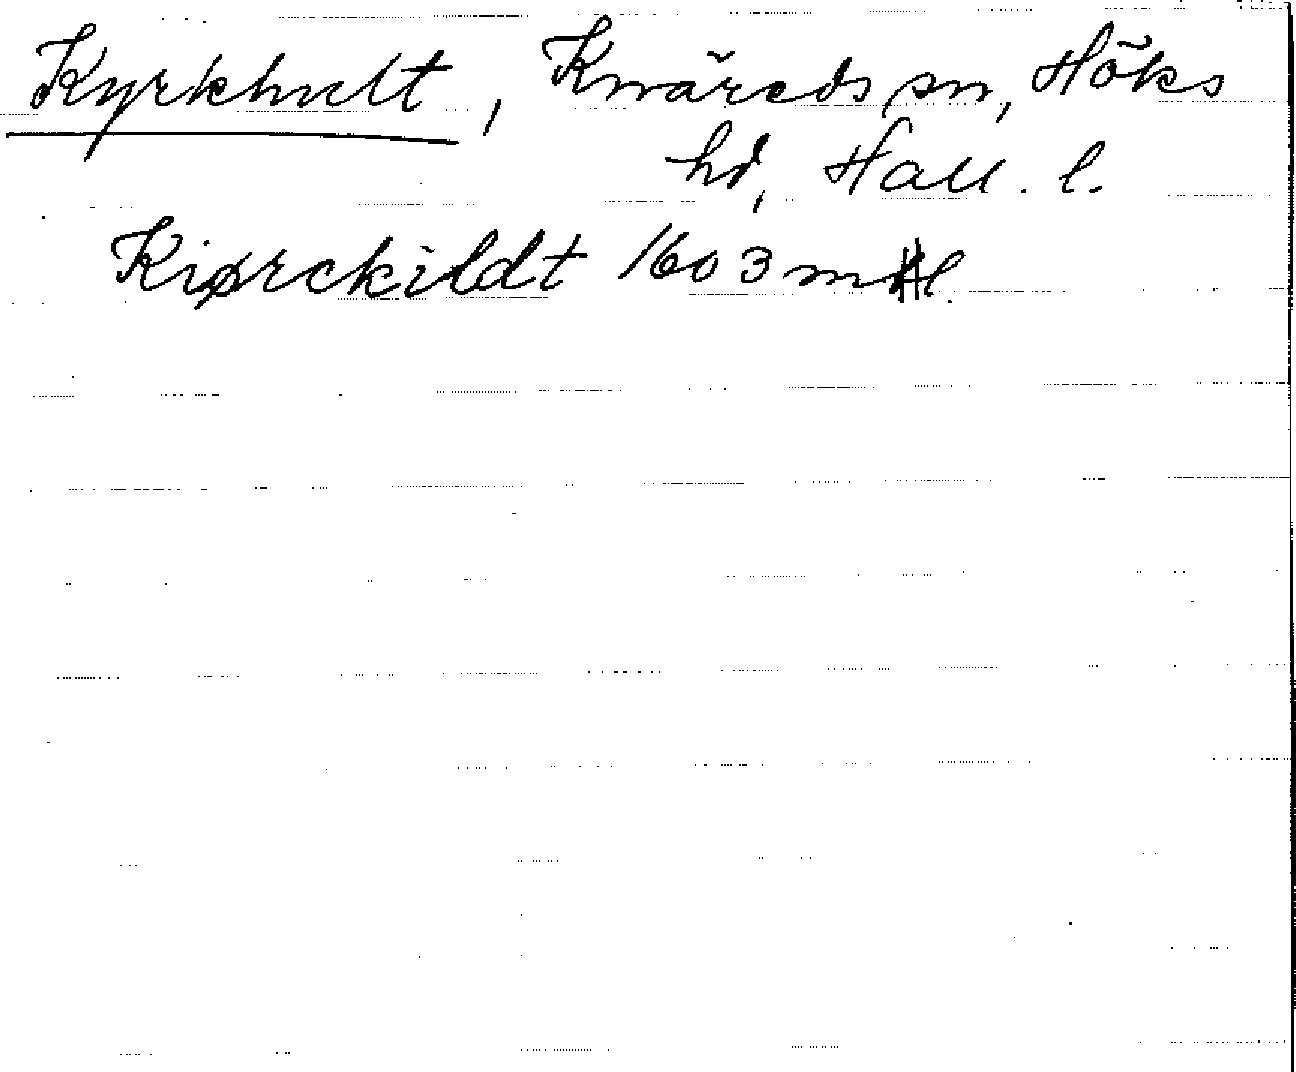 Kyrkhult, Knäreds sn, Höks
hd, Hall. l.
Kiørckildt 1603